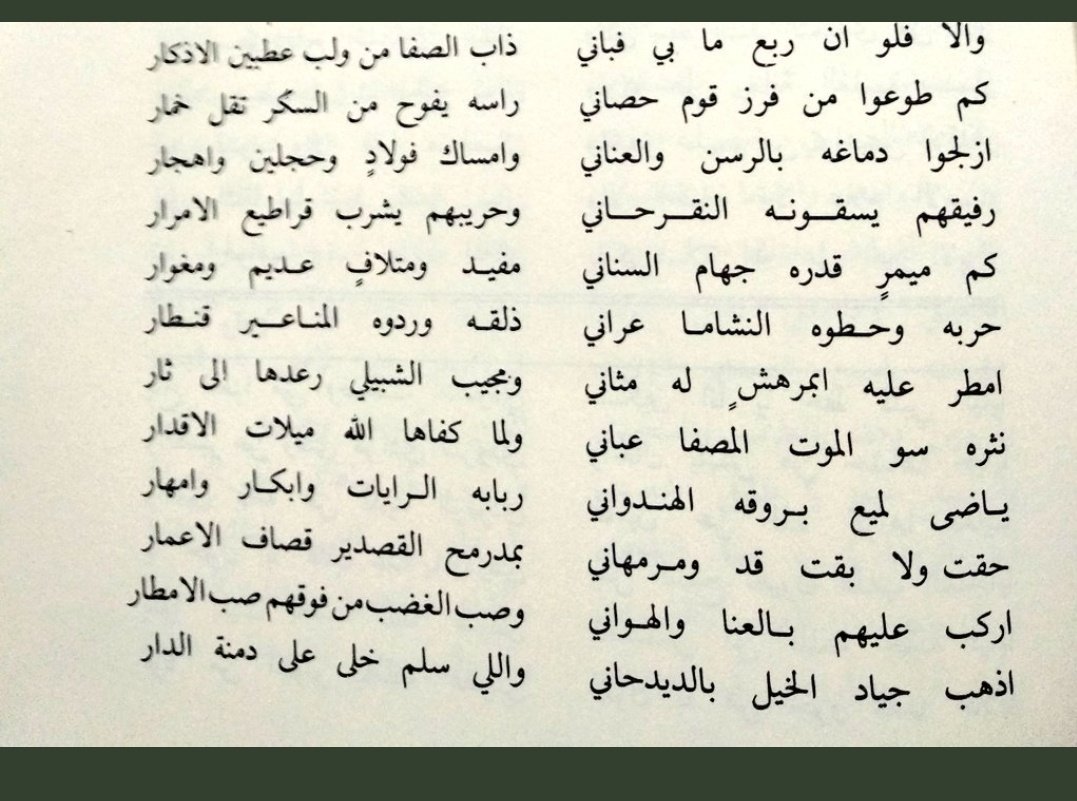 والا فلو ان ربع ما بي فباني ذاب الصفا من ولب عطبين الاذكار
كم طوعوا من فرز قوم حصاني راسه يفوح من السكر تقل خمار
ازلجوا دماغه بالرسن والعناني وامساك فولادٍ وحجلين واهجار
رفيقهم يسقونه النقرحاني وحريبهم يشرب قراطيع الامرار
كم ميمرٍ قدره جهام السناني مفيد ومتلافٍ عديم ومغوار
حربه وحطوه النشاما عراني ذلقه وردوه المناعير قنطار
امطر عليه ابمرهشٍ له مثاني ومجيب الشبيلي رعدها الى ثار
نثره سو الموت المصفا عباني ولما كفاها الله ميلات الاقدار
ياضى لميع بروقه الهندواني ربابه الرايات وابكار وامهار
حقت ولا بقت قد ومرمهاني بمدرمح القصدير قصاف الاعمار
اركب عليهم بالعنا والهواني وصب الغضب من فوقهم صب الامطار
اذهب جياد الخيل بالديدحاني واللي سلم خلى على دمنة الدار